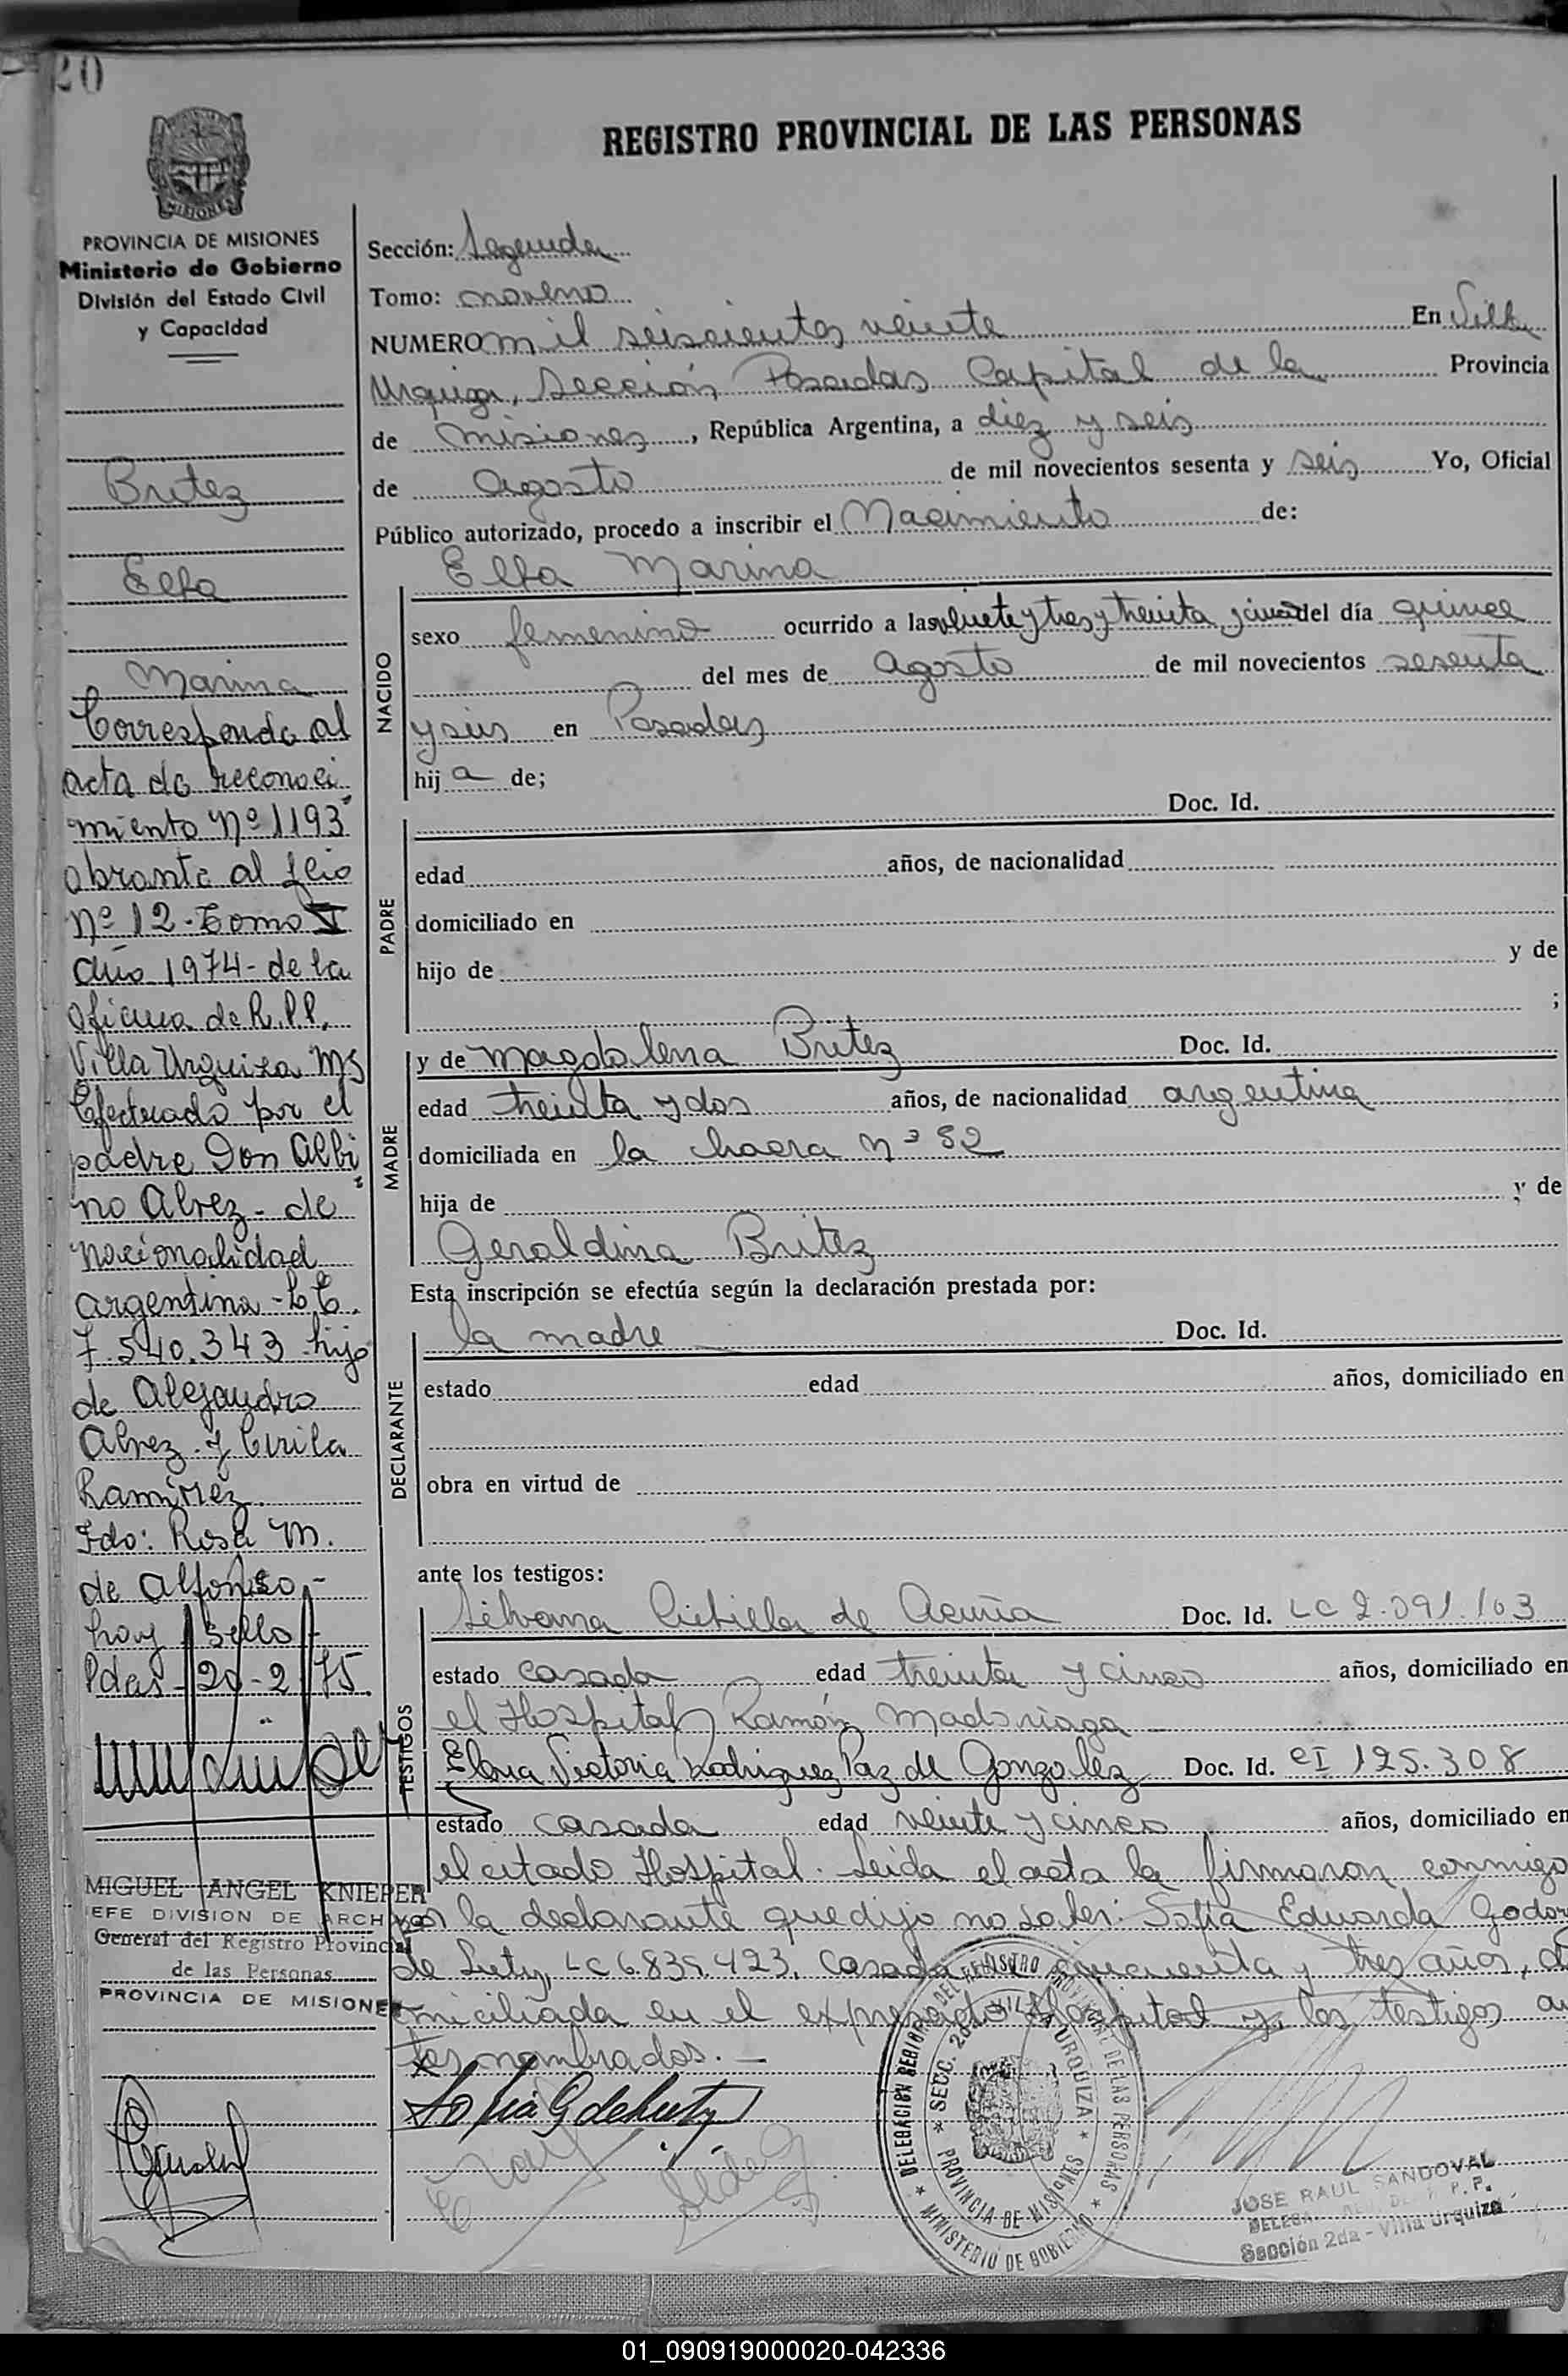 20
REGISTRO PROVINCIAL DE LAS PERSONAS
MISIONES
PROVINCIA DE MISIONES
Ministerio de Gobierno
División del Estado Civil
y Capacidad
Britez
Elba
Marina
Corresponde al
acta de reconoci
miento Nº 1193
obrante al flio
Nº 12 - Tomo I
Año 1974 - de la
Oficina de R.P.P.
Villa Urquiza Ms
Efectuado por el
padre Don Albi
no Alvez - de
nacionalidad
argentina -
7.540.343 hijo
de Alejandro
Alvez y Cirila
Ramirez
Fdo: Rosa M.
de Alfonso -
hay sello
Pdas 20-2-75
MIGUEL ANGEL KNIEPER
JEFE DIVISION DE ARCHIVO
General del Registro Provincial
de las Personas
PROVINCIA DE MISIONES
Sección: Segunda
Tomo: noveno
NUMERO mil seiscientos veinte En Villa
Urquiza, Sección Posadas Capital de la Provincia
de Misiones, República Argentina, a diez y seis
de Agosto de mil novecientos sesenta y seis Yo, Oficial
Público autorizado, procedo a inscribir el Nacimiento de:
NACIDO
Elba Marina
sexo femenino ocurrido a las veinte y tres y treinta y cinco del día quince
del mes de Agosto de mil novecientos sesenta
y seis en Posadas
hija de;
PADRE
Doc. Id.
edad años, de nacionalidad
domiciliado en
hijo de y de
;
MADRE
y de Magdalena Britez Doc. Id.
edad treinta y dos años, de nacionalidad argentina
domiciliada en la chacra Nº 82
hija de y de
Geraldina Britez
Esta inscripción se efectúa según la declaración prestada por:
DECLARANTE
la madre Doc. Id.
estado edad años, domiciliado en
obra en virtud de
ante los testigos:
TESTIGOS
Silvana de Acuña Doc. Id. LC 2.091.103
estado casada edad treinta y cinco años, domiciliado en
el Hospital Ramón Madariaga
Elena Victoria Rodriguez Paz de Gonzalez Doc. Id. CI 125.308
estado casada edad veinte y cinco años, domiciliado en
el citado Hospital. Leida el acta la firmaron conmigo
por la declarante que dijo no saber: Sofia Eduarda Godoy
de LC 6.839.423, casada, cincuenta y tres años, do
miciliada en el expresado Hospital y los testigos an
tes nombrados. -
DELEGACION DEL REGISTRO PROVINCIAL DE LAS PERSONAS
* MINISTERIO DE GOBIERNO *
* SECC. 2da VILLA URQUIZA *
PROVINCIA DE MISIONES
JOSE RAUL SANDOVAL
Sección 2da - Villa Urquiza
01_090919000020-042336